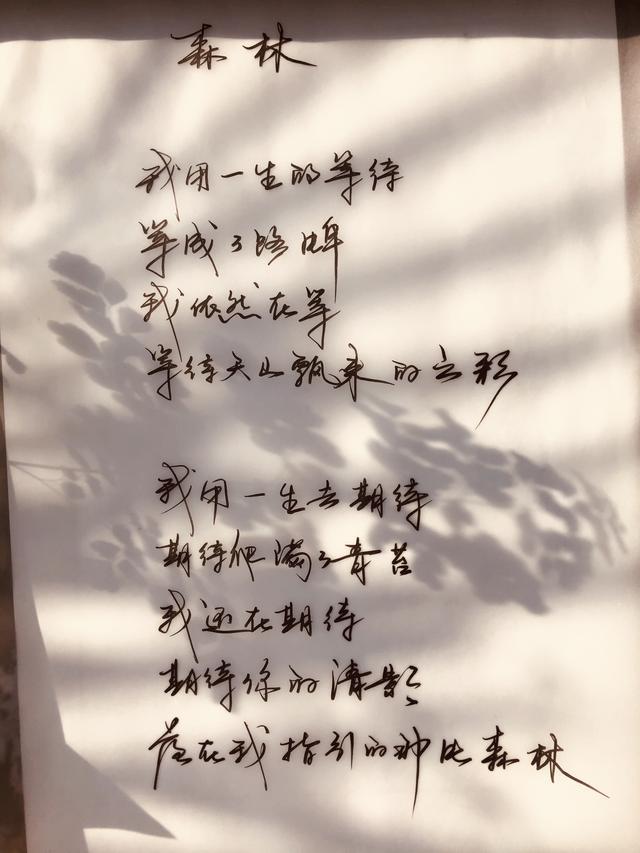 森林
我用一生的等待
等成了路牌
我依然在等
等待天山飘来的云彩
我用一生去期待
期待爬满了青苔
我还在期待
期待你的清影
落在我指引的那片森林